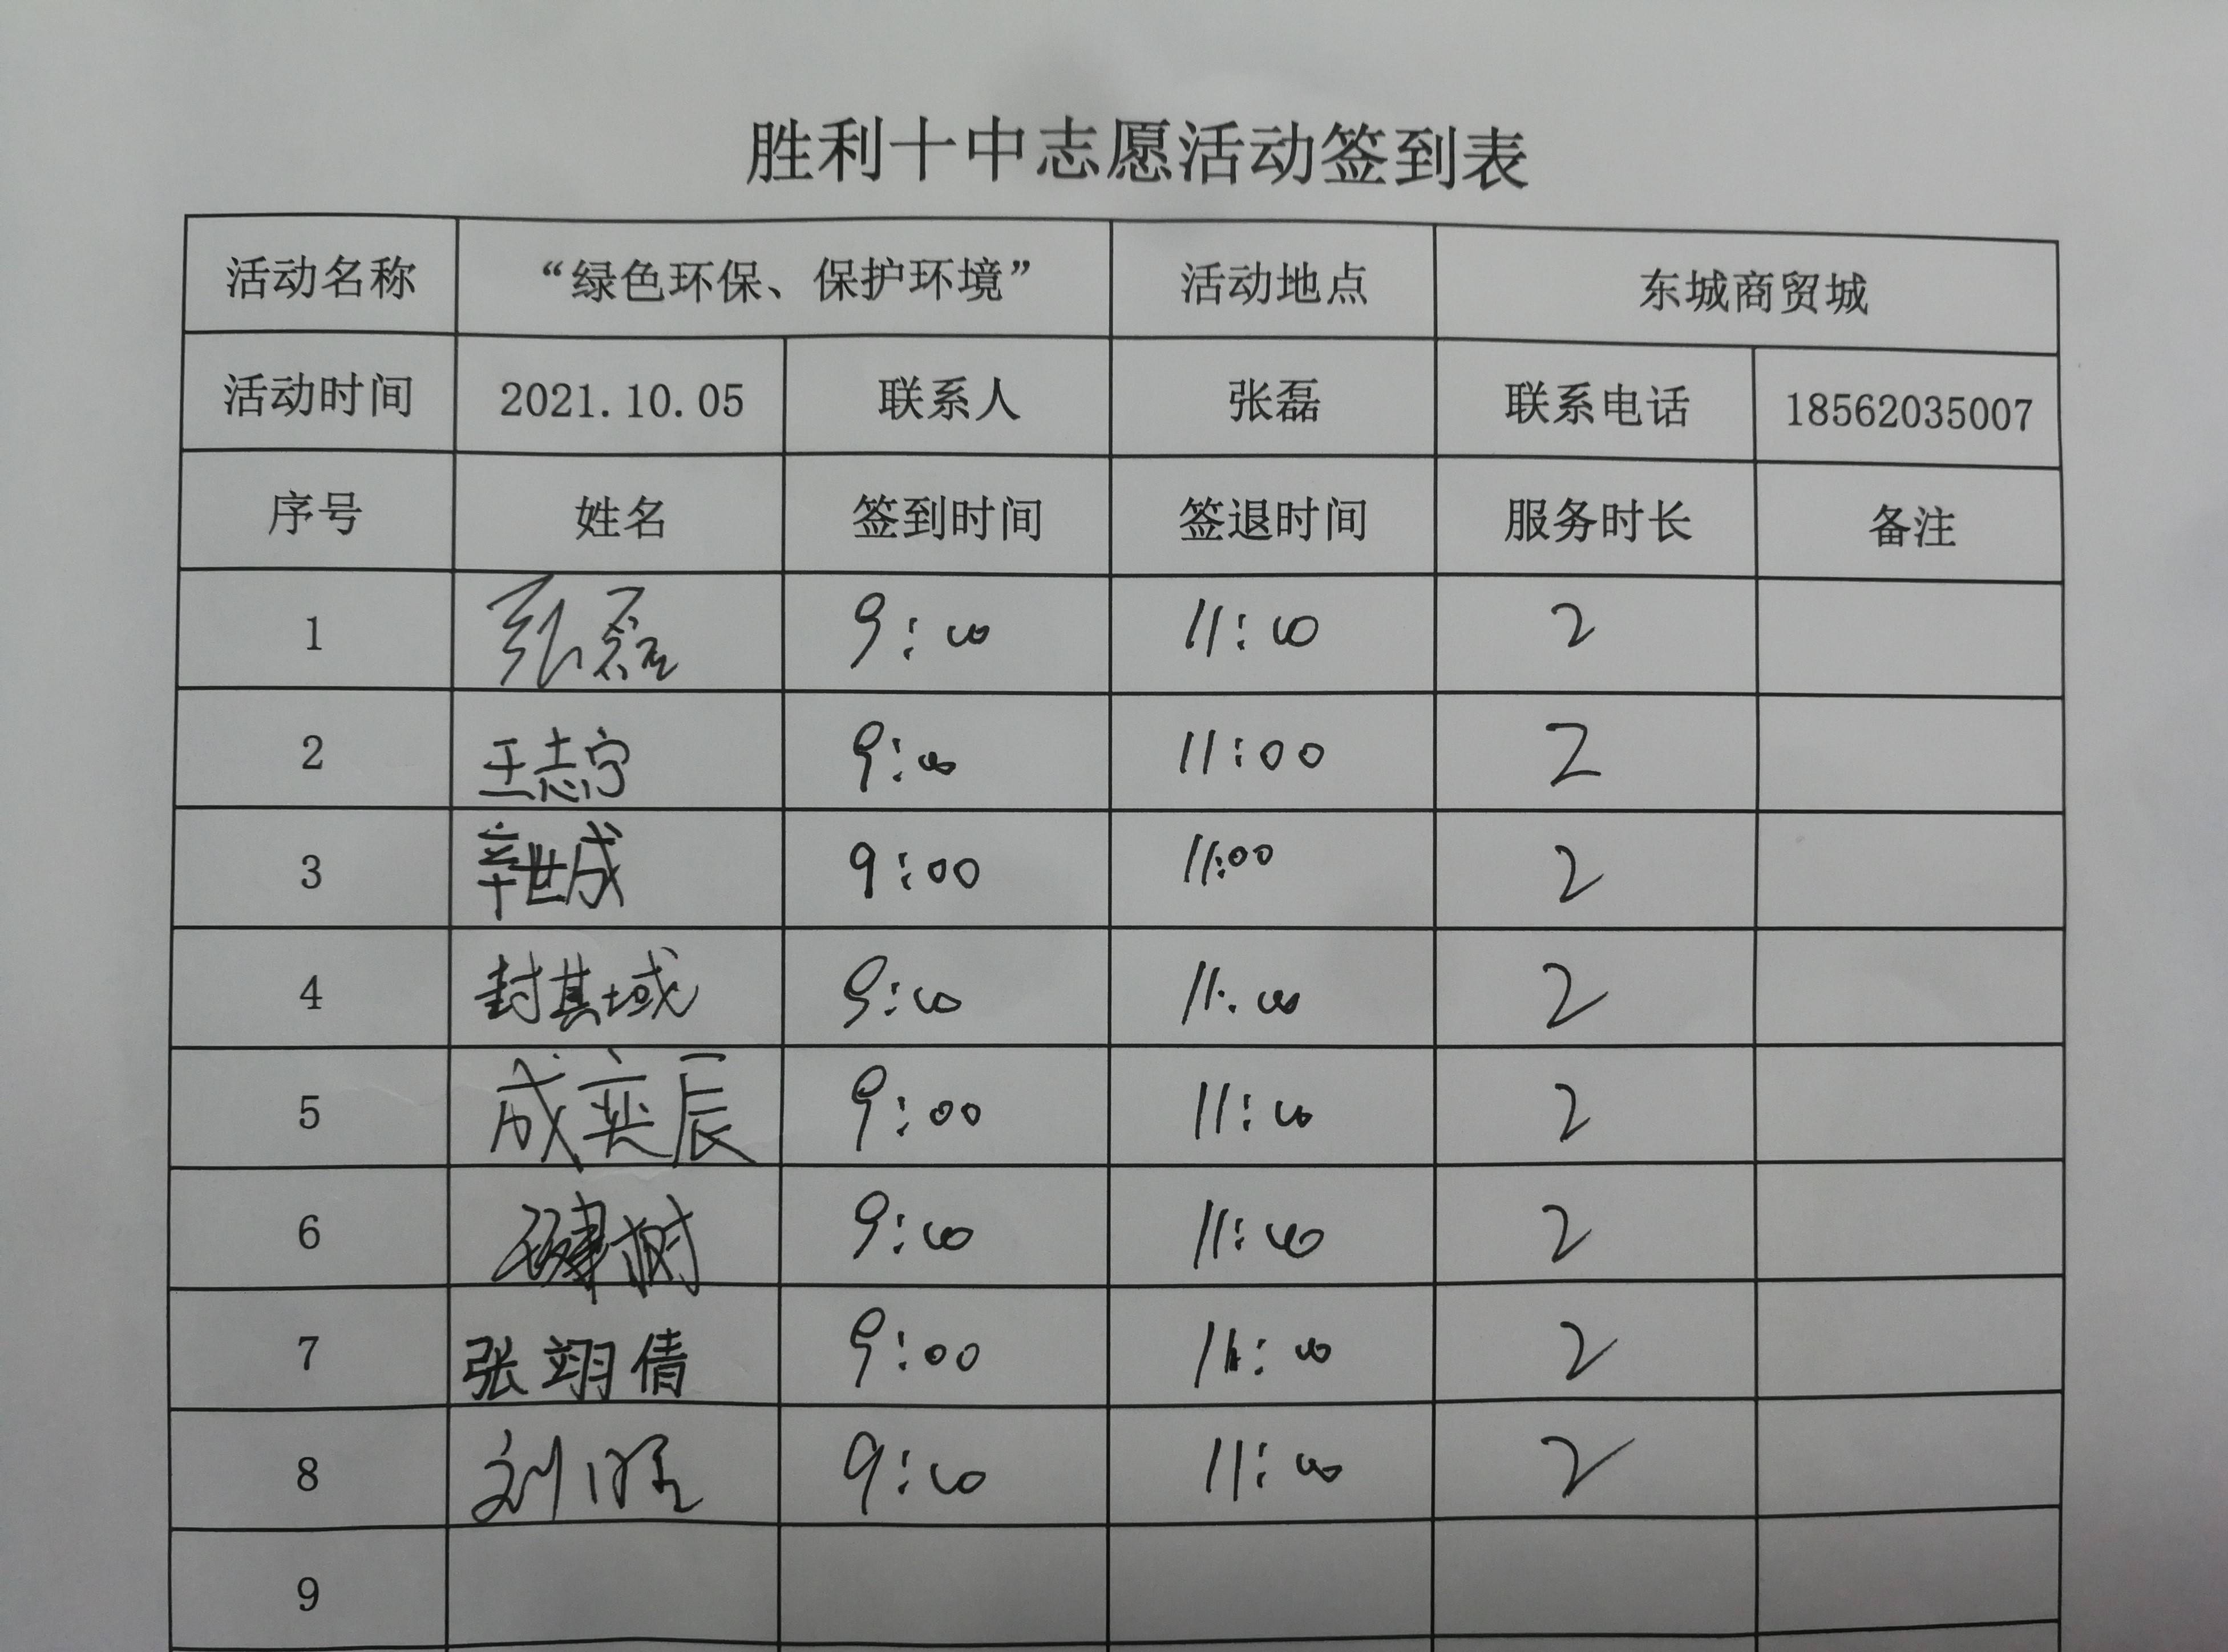 胜利十中志愿活动签到表
活动名称 “绿色环保、保护环境” 活动地点 东城商贸城
活动时间 2021.10.05 联系人 张磊 联系电话 18562035007
序号 姓名 签到时间 签退时间 服务时长 备注
1 张磊 9:00 11:00 2
2 王志宁 9:00 11:00 2
3 辛世成 9:00 11:00 2
4 封其域 9:00 11:00 2
5 成奕辰 9:00 11:00 2
6 9:00 11:00 2
7 张翊倩 9:00 11:00 2
8 刘 9:00 11:00 2
9